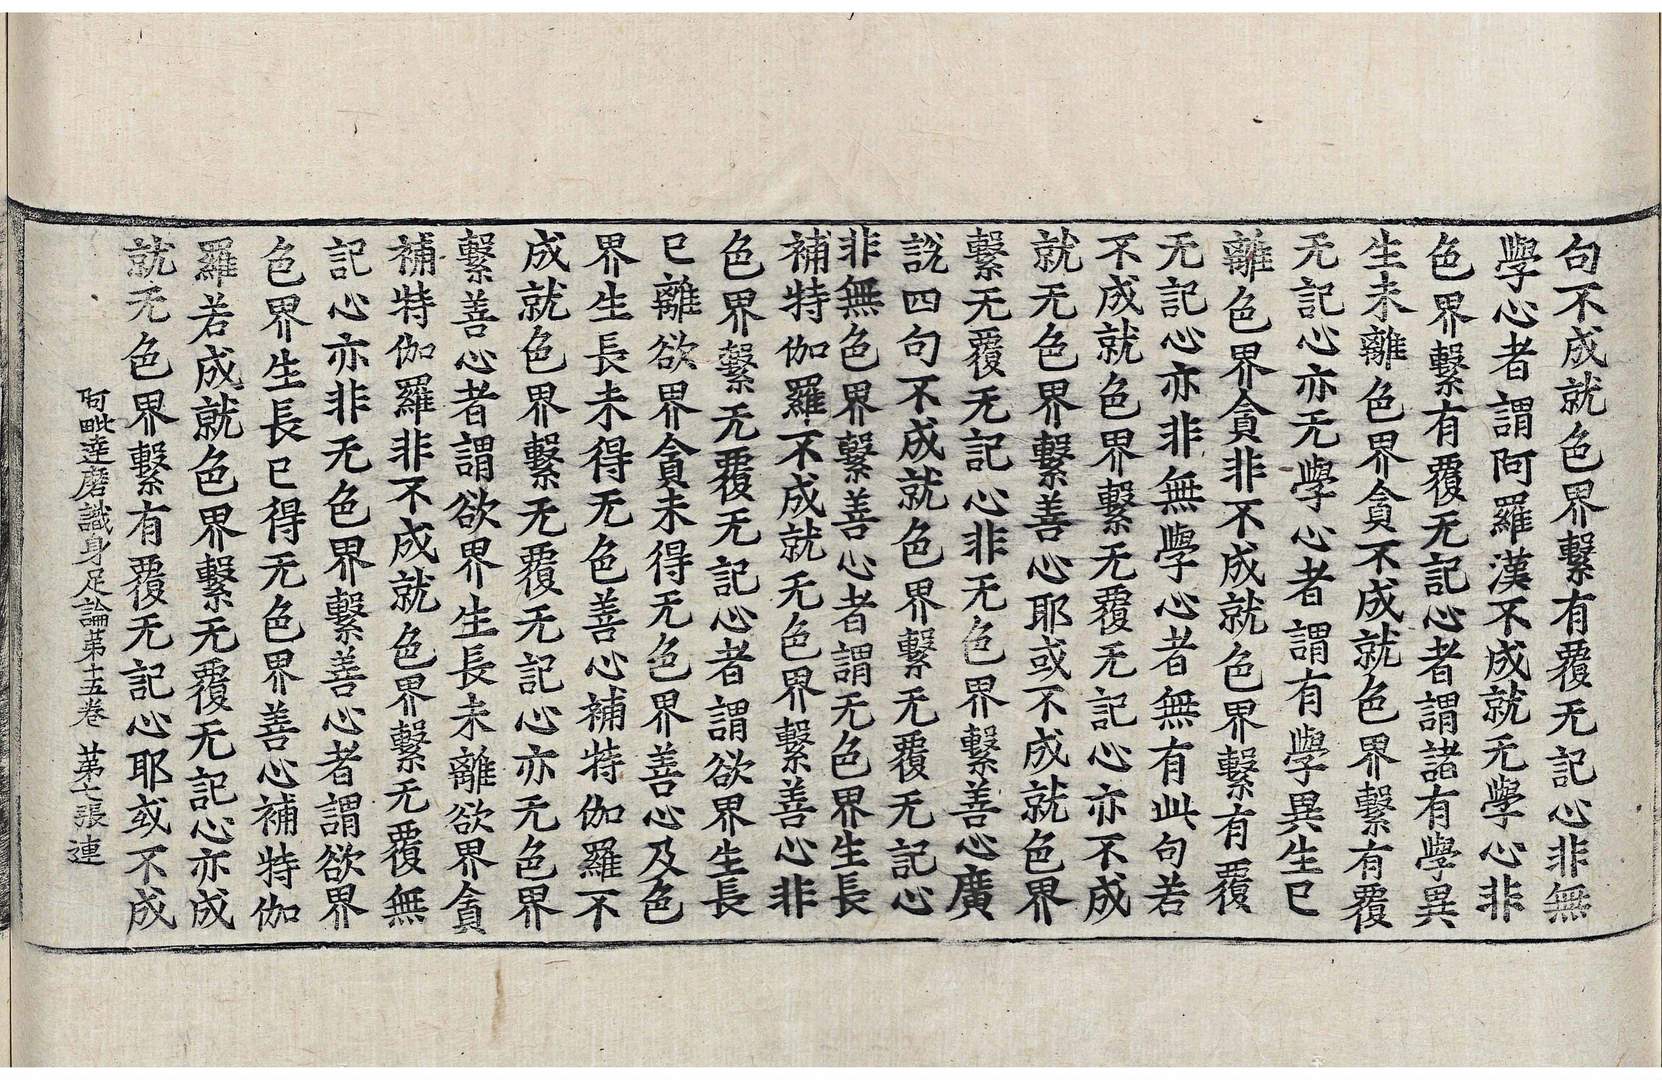 句不成就色界繫有覆无記心非無
學心者謂阿羅漢不成就无學心非
色界繫有覆无記心者謂諸有學異
生未離色界貪不成就色界繫有覆
无記心亦无學心者謂有學異生已
離色界貪非不成就色界繫有覆
无記心亦非無學心者無有此句若
不成就色界繫无覆无記心亦不成
就无色界繫善心耶或不成就色界
繫无覆无記心非无色界繫善心廣
說四句不成就色界繫无覆无記心
非無色界繫善心者謂无色界生長
補特伽羅不成就无色界繫善心非
色界繫无覆无記心者謂欲界生長
已離欲界貪未得无色界善心及色
界生長未得无色善心補特伽羅不
成就色界繫无覆无記心亦无色界
繫善心者謂欲界生長未離欲界貪
補特伽羅非不成就色界繫无覆無
記心亦非无色界繫善心者謂欲界
色界生長已得无色界善心補特伽
羅若成就色界繫无覆无記心亦成
就无色界繫有覆无記心耶或不成
阿毗達磨識身足論第十五卷 第七張 連